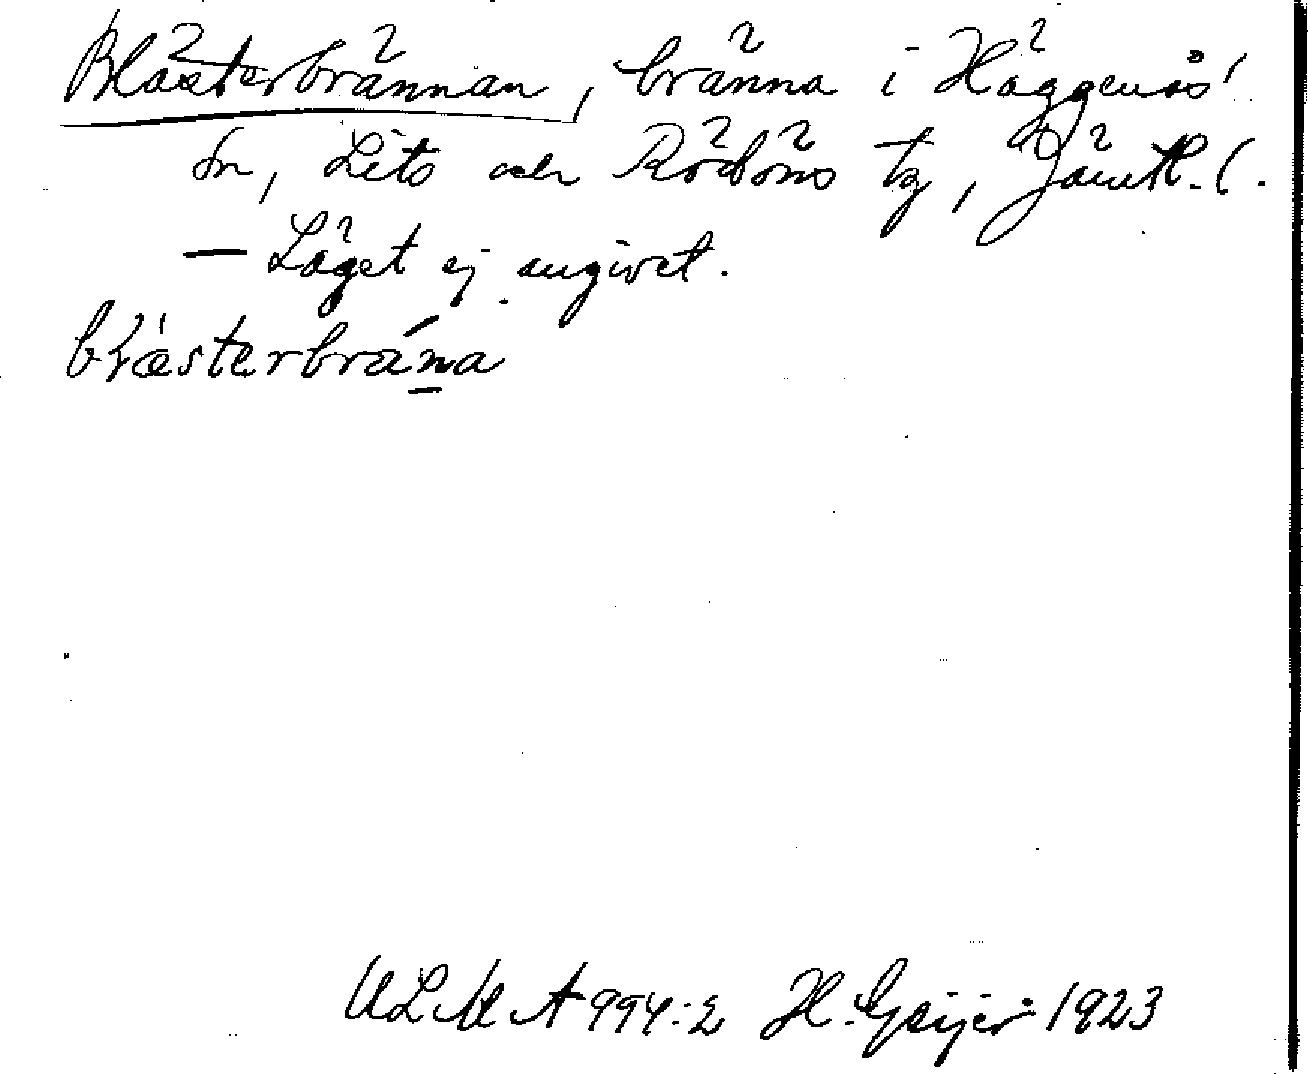 Blästerbrännan, bränna i Häggenås
sn, Lits och Rödöns tg, Jämtl. l.
— Läget ej angivet.
blæ̀sterbrána
ULMA 994:2 H. Geijer 1923